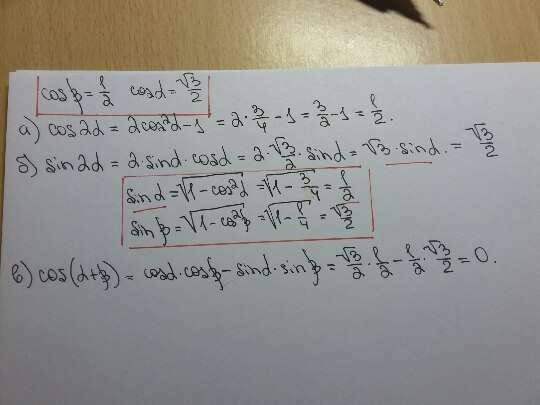 cosβ = 1/2 cosα = √3/2
а) cos2α = 2cos²α - 1 = 2·3/4 - 1 = 3/2 - 1 = 1/2.
б) sin2α = 2·sinα·cosα = 2·√3/2·sinα = √3·sinα. = √3/2
sinα = √(1 - cos²α) = √(1 - 3/4) = 1/2
sinβ = √(1 - cos²β) = √(1 - 1/4) = √3/2
в) cos(α+β) = cosα·cosβ - sinα·sinβ = √3/2·1/2 - 1/2·√3/2 = 0.